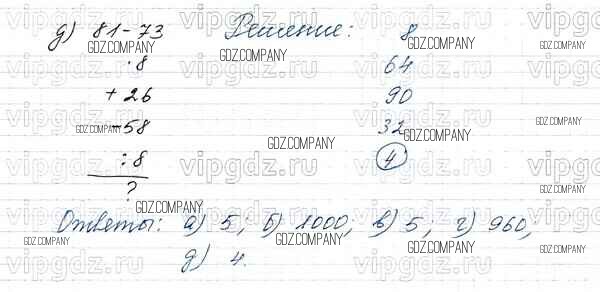 д) 81-73 Решение: 8
·8 64
+26 90
-58 32
:8 4
?
Ответы: а) 5; б) 1000; в) 5; г) 960;
д) 4.
GDZ.COMPANY
vipgdz.ru